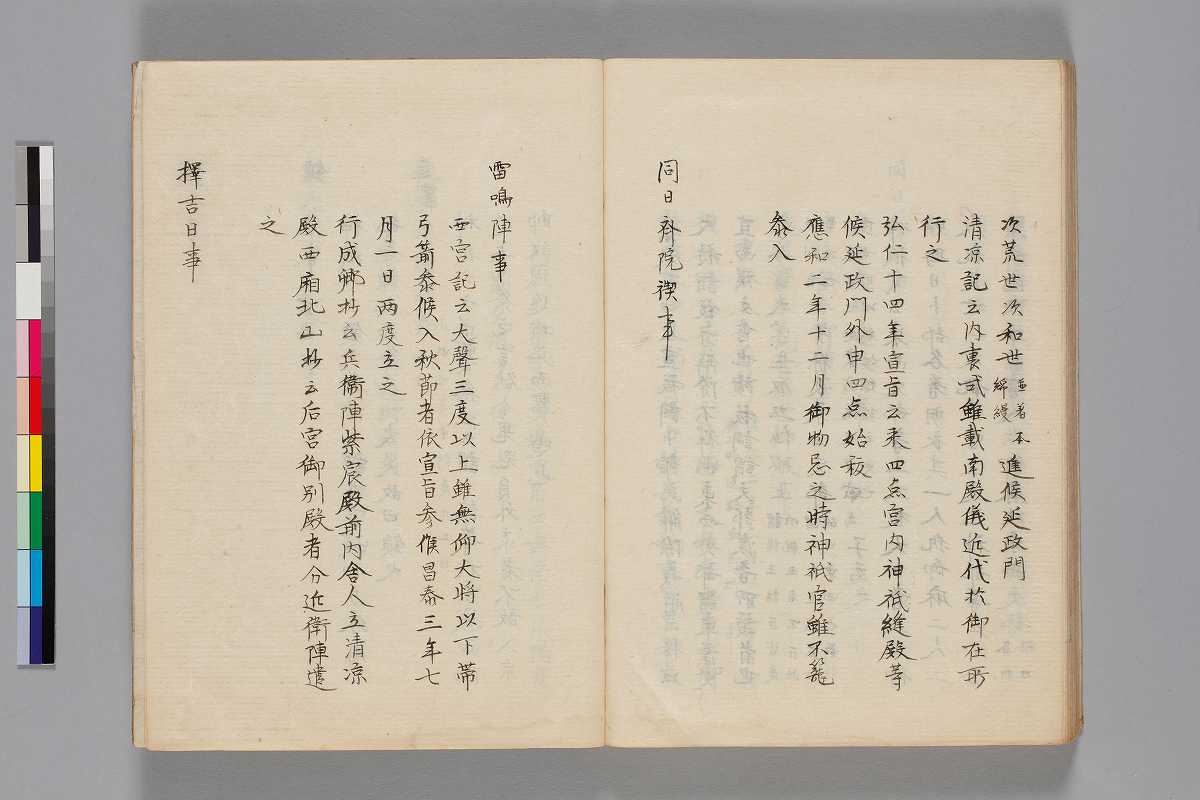 次荒世次和世並着木綿縵進候延政門
清凉記云内裏式雖載南殿儀近代於御在所
行之
弘仁十四年宣旨云未四点宮内神祇縫殿等
候延政門外申四点始秡
應和二年十二月御物忌之時神祇官雖不籠
参入
同日斉院禊事
雷鳴陣事
西宮記云大聲三度以上雖無仰大将以下帯
弓箭参候入秋節者依宣旨参候昌泰三年七
月一日两度立之
行成卿抄云兵衛陣紫宸殿前内舎人立清凉
殿西廂北山抄云后宮御別殿者分近衛陣遣
之
擇吉日事